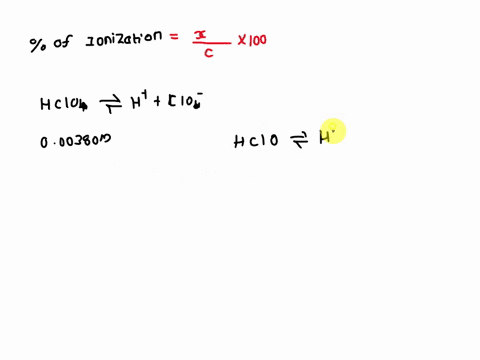 % of Ionization = x/c × 100
HClO4 ⇌ H+ + ClO4-
0.00380M HClO ⇌ H+